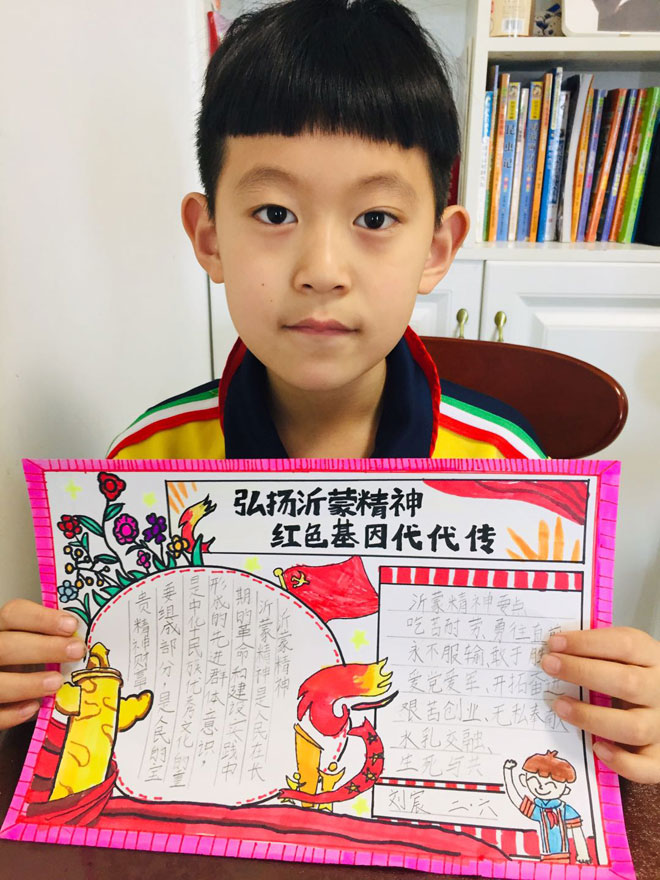 昆虫记
弘扬沂蒙精神
红色基因代代传
沂蒙精神
沂蒙精神是人民在长
期的革命和建设实践中
形成的先进群体意识。
是中华民族优秀文化的重
要组成部分,是人民的宝
贵精神财富
沂蒙精神
吃苦耐劳、勇往直前
永不服输、敢于胜
爱党爱军、开拓奋
艰苦创业、无私奉献
水乳交融、
生死与共
刘宸 二·六